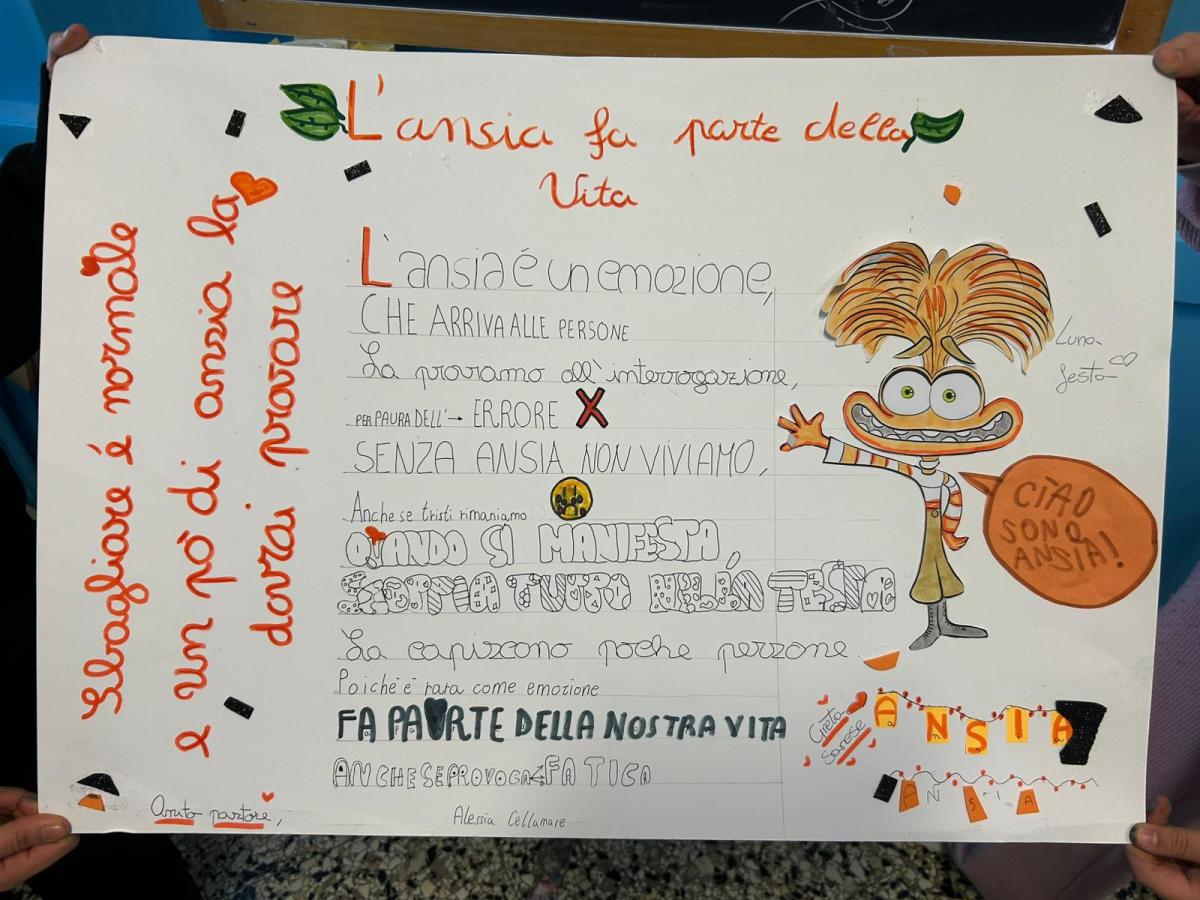 L'ansia fa parte della
Vita
Sbagliare é normale
e un pò di ansia la
dovrai provare
L'ansia é un emozione,
CHE ARRIVA ALLE PERSONE
La proviamo all'interrogazione,
PER PAURA DELL'→ ERRORE X
SENZA ANSIA NON VIVIAMO,
Anche se tristi rimaniamo
QUANDO SI MANIFESTA,
SOPRATTUTTO NELLA TESTA
La capiscono poche perzone.
Poichè è rara come emozione
FA PARTE DELLA NOSTRA VITA
ANCHE SE PROVOCA FATICA
Luna
CIAO
SONO
ANSIA!
Greta
ANSIA
ANSIA
Alessia Cellamare